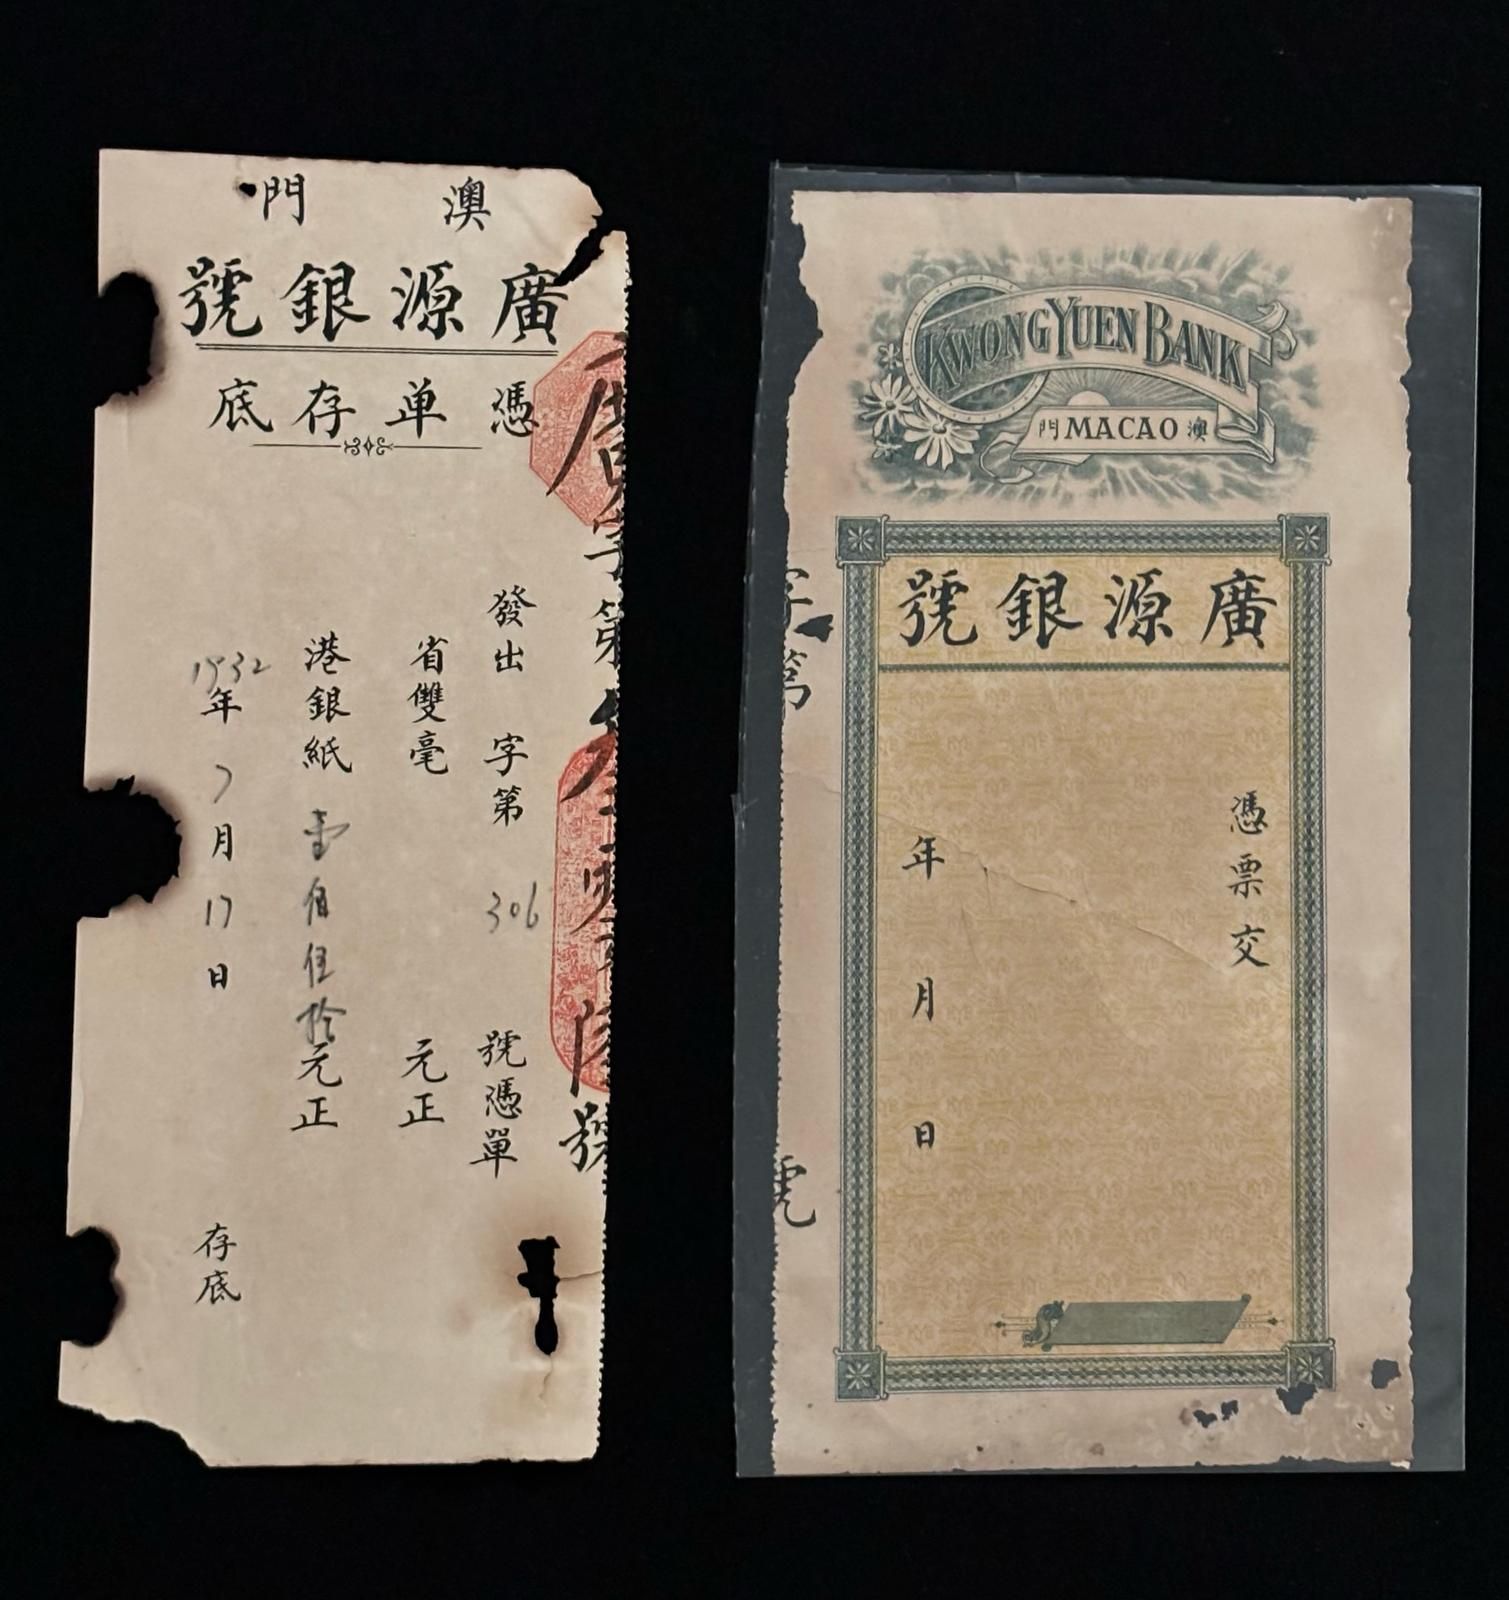 澳門
廣源銀號
憑单存底
廣字第叁零陸號
發出 字第 306 號憑單
省雙毫 元正
港銀紙壹佰伍拾元正
1932年7月17日
存底
KWONG YUEN BANK
澳 MACAO 門
廣源銀號
憑票交
年 月 日
字第 號